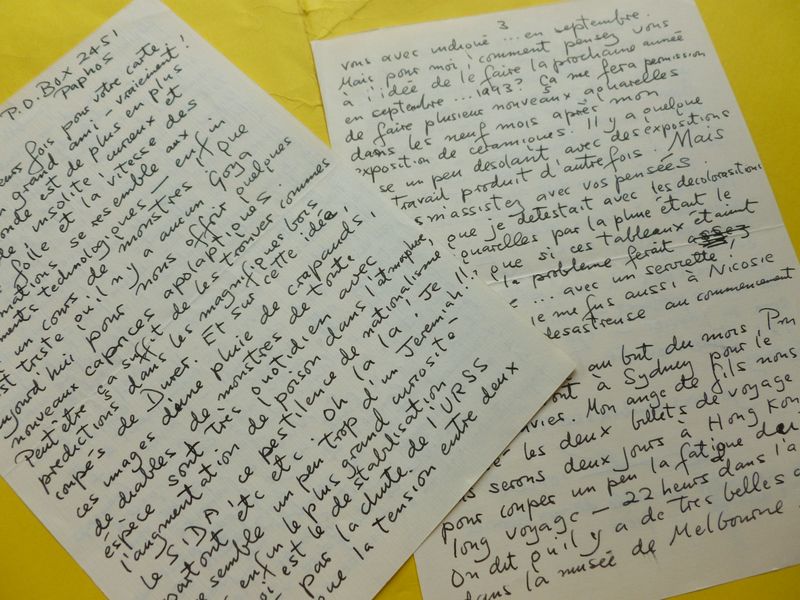 P.O. Box 2451
Paphos
fois pour votre carte
grand ami - vraiment!
est de plus en plus
insolite, curieux et
folle et la vitesse des
se resemble aux
technologiques - enfin
un cours de monstres que
est triste qu'il n'y a aucun Goya
aujourd'hui pour nous offrir quelques
nouveaux caprices apolaptiques.
Peut être ça suffit de les trouver commes
predictions dans les magnifiques bois
coupés de Durer. Et sur cette idée,
ces images d'une pluie de crapauds,
de diables et de monstres de toute
éspèce sont très quotidien avec
l'augmentation de poison dans l'atmosphère,
le SIDA, ce pestilence de nationalisme
partout etc etc. Oh la la, je
semble un peu trop d'un Jeremiah!!
enfin le plus grand curiosité
moi est le de stabilisation
par la chute de l'URSS
que la tension entre deux
3
vous avec indiqué ... en septembre.
Mais pour moi, comment pensez vous
à l'idée de le faire la prochaine année
en septembre ... 1993? Ça me fera permission
de faire plusieur nouveaux aquarelles
dans les neuf mois après mon
exposition de ceramiques. Il y a quelque
se un peu desolant avec des expositions
travail produit d'autrefois. Mais
m'assistez avec vos pensées.
que je detestait avec les decolorasition
quarelles par la pluie était le
que si ces tableaux étaient
la problème ferait
... avec un serviette,
me fus aussi à Nicosie
desastreuse au commencement
au but, du mois
ont à Sydney pour le
vier. Mon ange de fils nous
les deux billets de voyage
us serons deux jours à Hong Kon
pour couper un peu la fatigue du
long voyage - 22 heurs dans l'a
On dit qu'il y a de tres belles
dans la musée de Melbourne